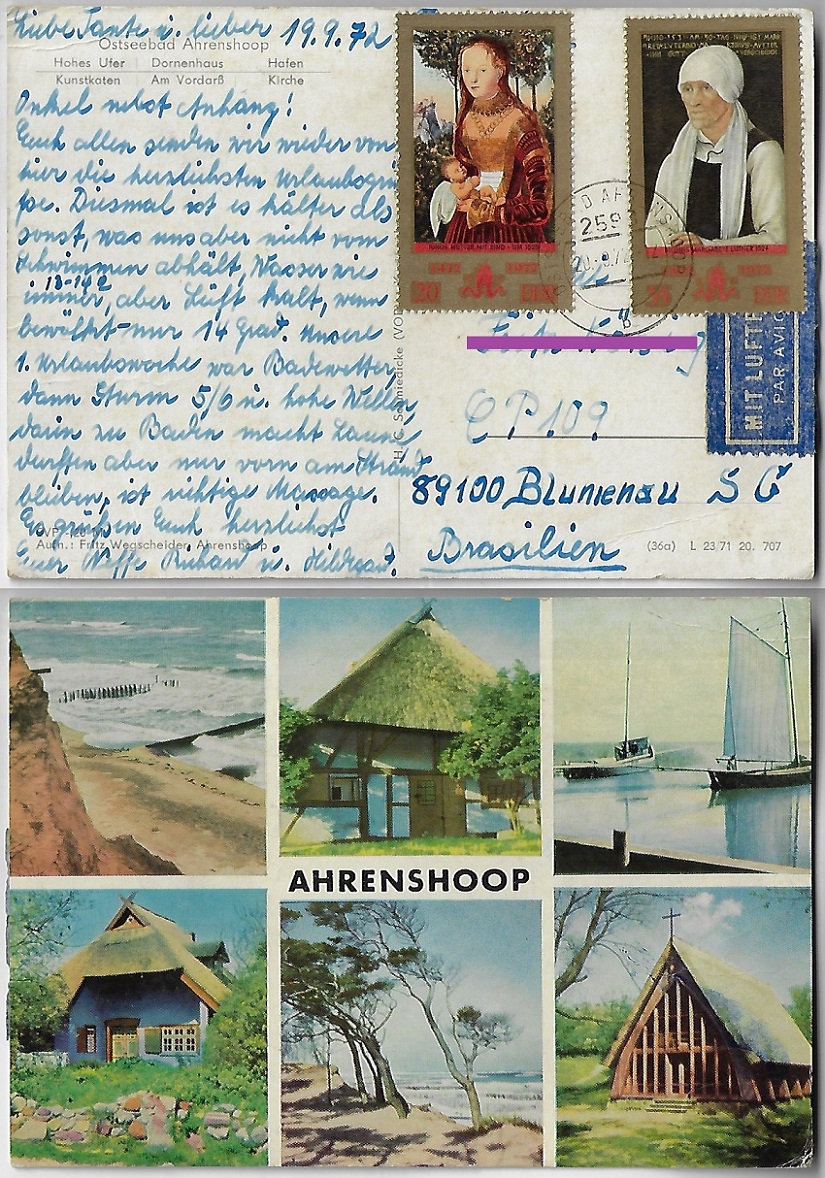 Liebe Tante u. lieber 19.9.72
Ostseebad Ahrenshoop
Hohes Ufer Dornenhaus Hafen
Kunstkaten Am Vordarß Kirche
Onkel nebst Anhang!
Euch allen senden wir wieder von
hier die herzlichsten Urlaubsgrü
ße. Diesmal ist es kälter als
sonst, was uns aber nicht vom
Schwimmen abhält, Wasser wie
immer, 13-14° aber Luft kalt, wenn
bewölkt nur 14 Grad. Unsere
1. Urlaubswoche war Badewetter,
dann Sturm 5/6 u. hohe Wellen,
darin zu Baden macht Laune
durften aber nur vorn am Strand
bleiben, ist richtige Massage.
Es grüßen Euch herzlichst
Aufn.: Fritz Wegscheider, Ahrenshoop
Euer Neffe Richard u. Hildegard.
H. C. Schmiedicke
JUNGE MUTTER MIT KIND
1472 1972
20 DDR
MARGARETE LUTHER 1527
1472 1972
35 DDR
259
MIT LUFTP
PAR AVIO
CP 109
89100 Blumenau S C
Brasilien
(36a) L 23 71 20. 707
AHRENSHOOP